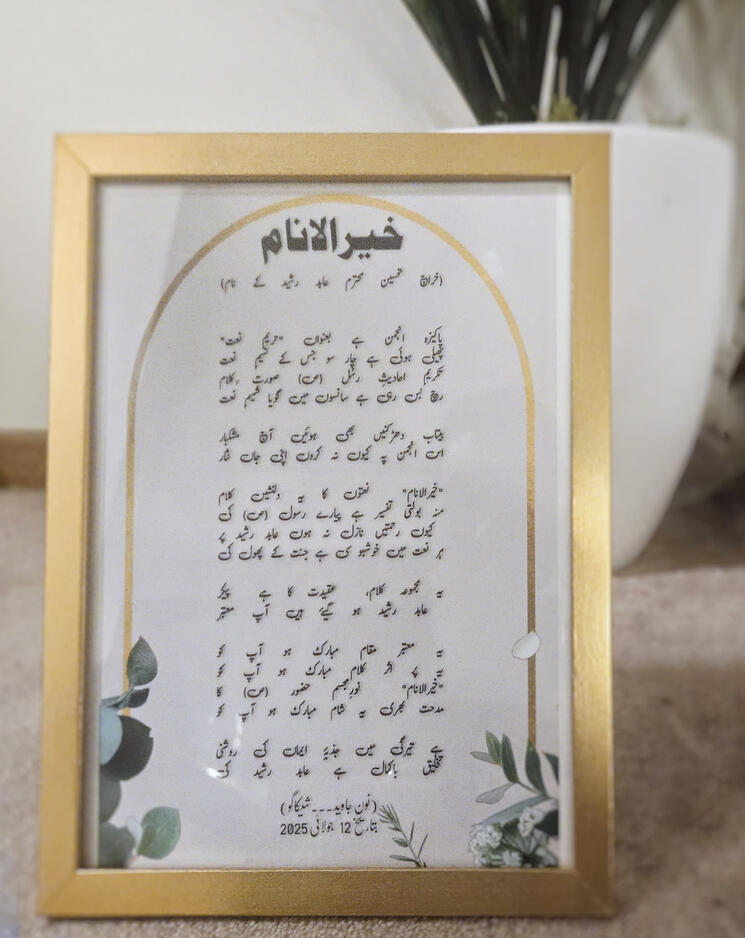 خیرالانام
(خراج تحسین محترم عابد رشید کے نام)
پاکیزہ انجمن ہے بعنوان "حریمِ نعت"
پھیلی ہوئی ہے چار سو جس کے نسیمِ نعت
تکریمِ احادیثِ رسل (ص) صورتِ کلام
رچ بس رہی ہے سانسوں میں گویا شمیمِ نعت
بیتاب دھڑکنیں بھی ہوئیں آج مشکبار
اس انجمن پہ کیوں نہ کروں اپنی جاں نثار
"خیرالانام" نعتوں کا یہ دلنشیں کلام
منہ بولتی تفسیر ہے پیارے رسول (ص) کی
کیوں رحمتیں نازل نہ ہوں عابد رشید پر
ہر نعت میں خوشبو سی ہے جنت کے پھول کی
یہ مجموعہ کلام، عقیدت کا ہے پیکر
عابد رشید ہو گیے ہیں آپ معتبر
یہ معتبر مقام مبارک ہو آپ کو
یہ پر اثر کلام مبارک ہو آپ کو
"خیرالانام" نورِمجسم حضور (ص) کا
مدحت بھری یہ شام مبارک ہو آپ کو
ہے تیرگی میں جذبۂ ایماں کی روشنی
تخلیق باکمال ہے عابد رشید کی
(نون جاوید۔۔۔شیکاگو)
بتاریخ 12 جولائی 2025